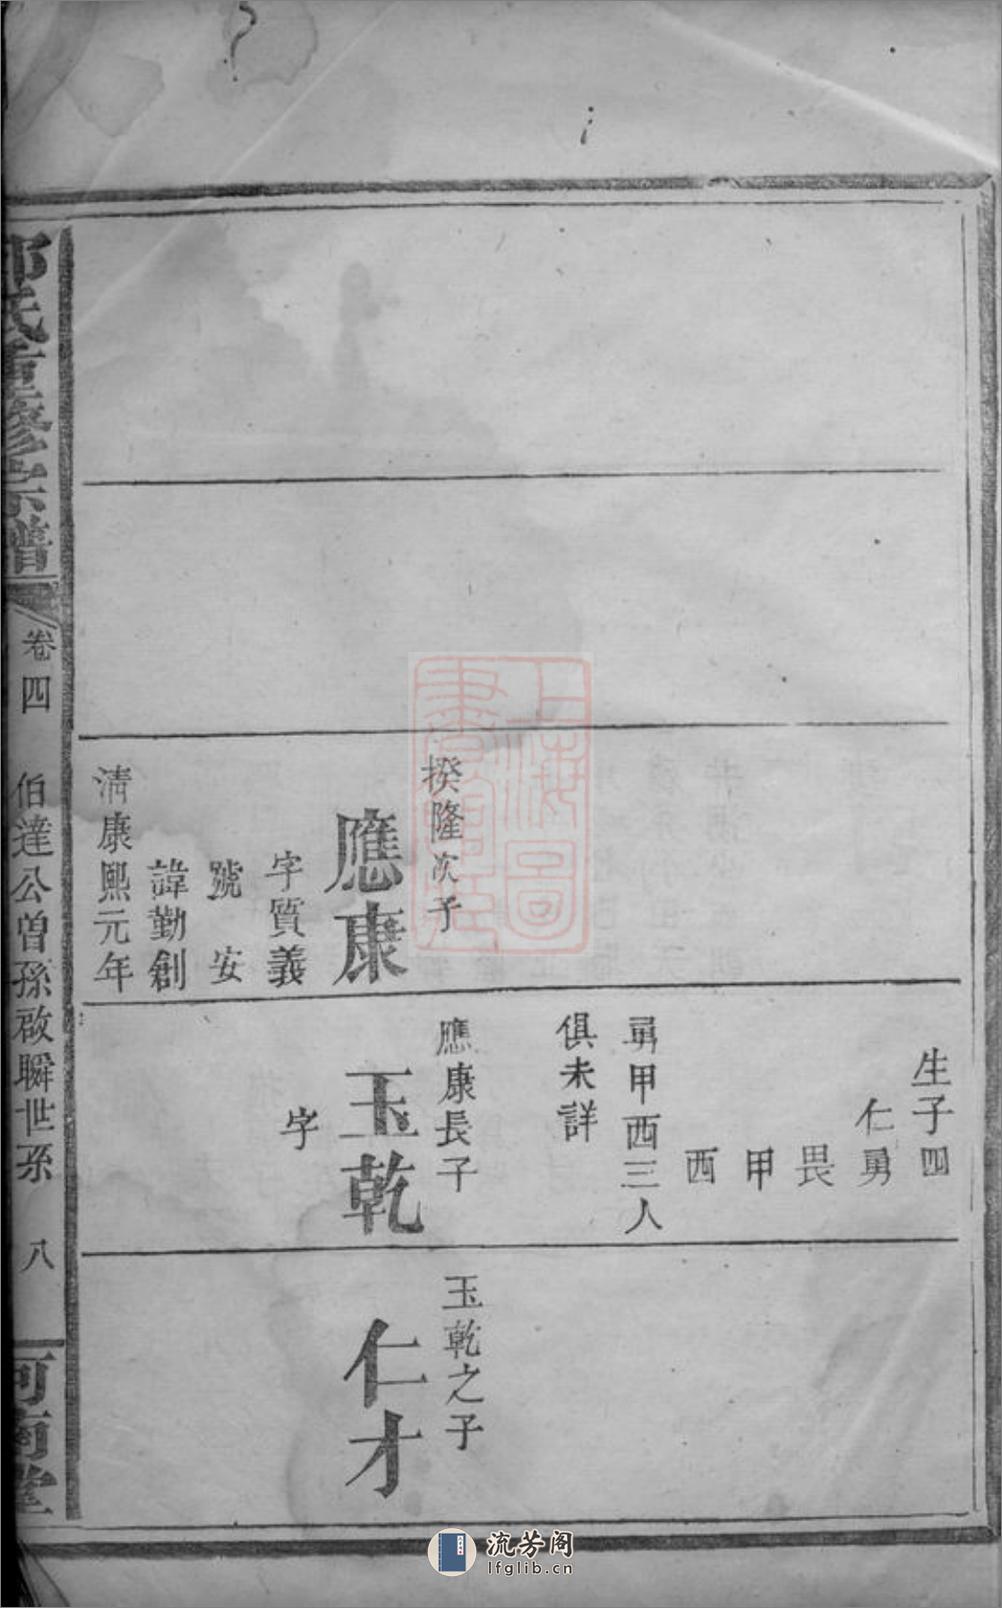 揆隆次子
應康
字質義
號　安
諱勤創
清康熙元年
生子四
仁勇
畏
甲
西
勇甲西三人
俱未詳
應康長子
玉乾
字
玉乾之子
仁才
氏重修宗譜
卷四
伯達公曾孫啟瞬世系
八
河南堂
上海圖書館藏
流芳阁
lfglib.cn